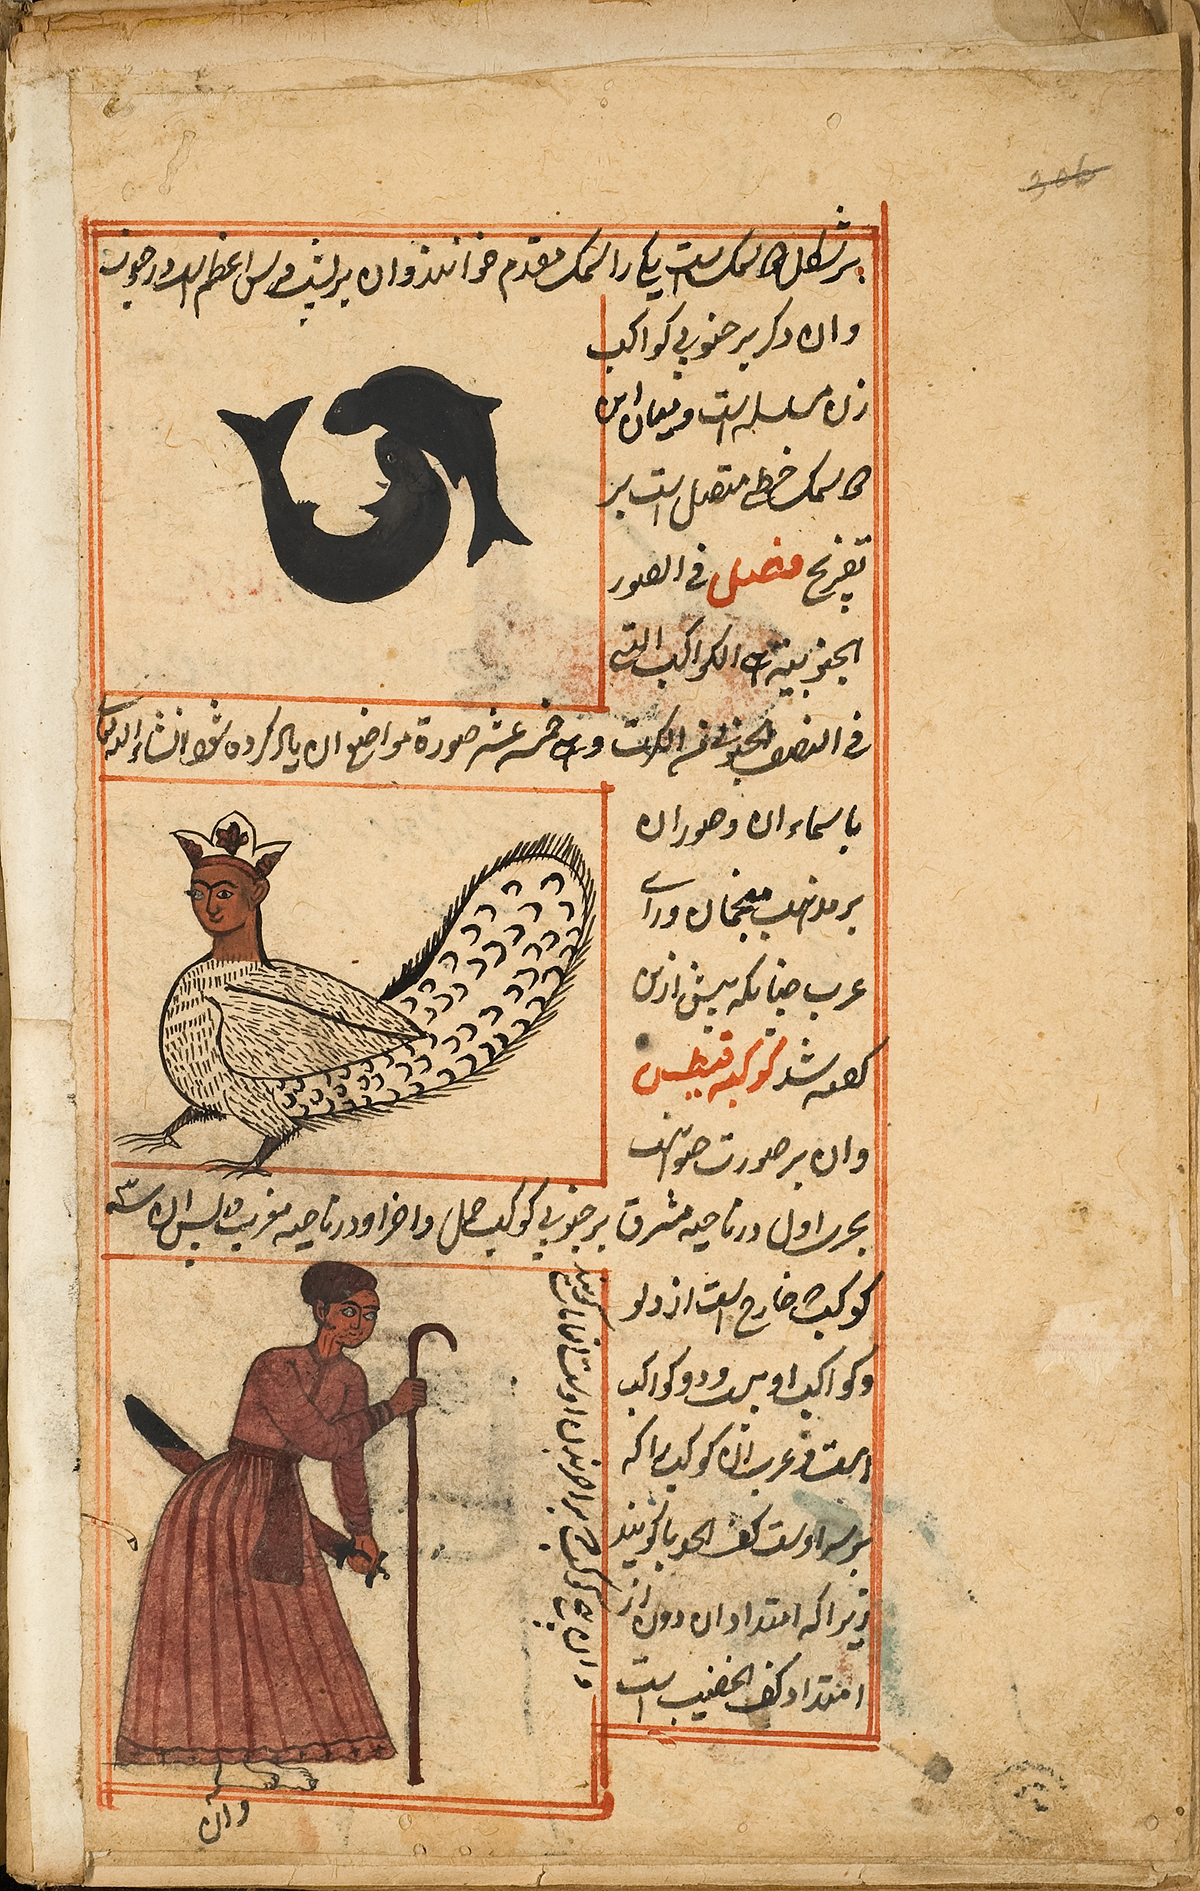 306
بر شکل دو سمک است یکی را سمک مقدم خوانند و ان بر پشت فرس اعظم است در جنوب
و ان دکر بر جنوبی کواکب
زن مسلسله است و میان این
دو سمک خطی متصل است بر
تعریج فصل فی الصور
الجنوبیة الکواکب التی
فی النصف الجنوبی الکرت و خمسه عشر صورة مواضع ان یاد کرده شود انشاء الله تعالی
باسماء ان و صور ان
بر مذهب منجمان و رای
عرب چنانکه پیش ازین
کفته شد کوکبه قیطس
و ان بر صورت حیوانیست
بحری اول در ناحیه مشرق بر جنوبی کوکب حمل و اخر او در ناحیه مغرب پس ان سه
کوکب خارج است از دلو
و کواکب او بیست و دو کواکب
است و عرب ان کوکب را که
بر سر اوست کف الجذما کویند
زیرا که امتداد ان دون از
امتداد کف الخضیب است
و ان پنج کوکب را که بر بدن اوست
و ان